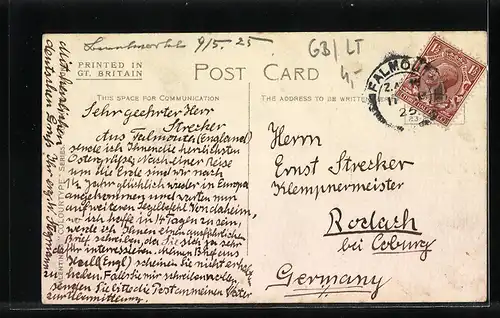 9/5. 25
GB/LT
4,-
PRINTED IN
GT. BRITAIN
POST CARD
THIS SPACE FOR COMMUNICATION
THE ADDRESS TO BE WRITTEN
FALMOUTH
25
Sehr geehrter Herr
Strecker
Aus Falmouth (England)
sende ich Ihnen die herzlichsten
Ostergrüße. Nach einer Reise
um die Erde sind wir nach
1½ Jahr glücklich wieder in Europa
angekommen und warten nun
auf weiteren Segelbefehl. Von daheim,
wo ich hoffe in 14 Tagen zu sein,
werde ich Ihnen einen ausführlichen
Brief schreiben, da Sie sich ja sehr
dafür interessieren. Meinen Brief aus
(Engl) scheinen Sie nicht erhalten
zu haben. Falls Sie mir schreiben wollen,
senden Sie bitte die Post an meinen Vater
zur Übermittelung.
deutschen Gruß Ihr
Herrn
Ernst Strecker
Klempnermeister
Rodach
bei Coburg
Germany